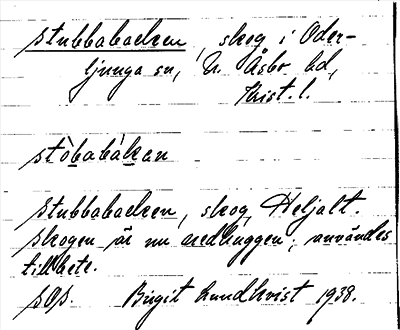 Stubbabacken, skog i Oder-
ljunga sn, N. Åsbo hd,
Krist. l.
stòbabákan
Stubbabacken, skog, Heljalt.
Skogen är nu nedhuggen, användes
till bete.
Birgit Lundkvist 1938.